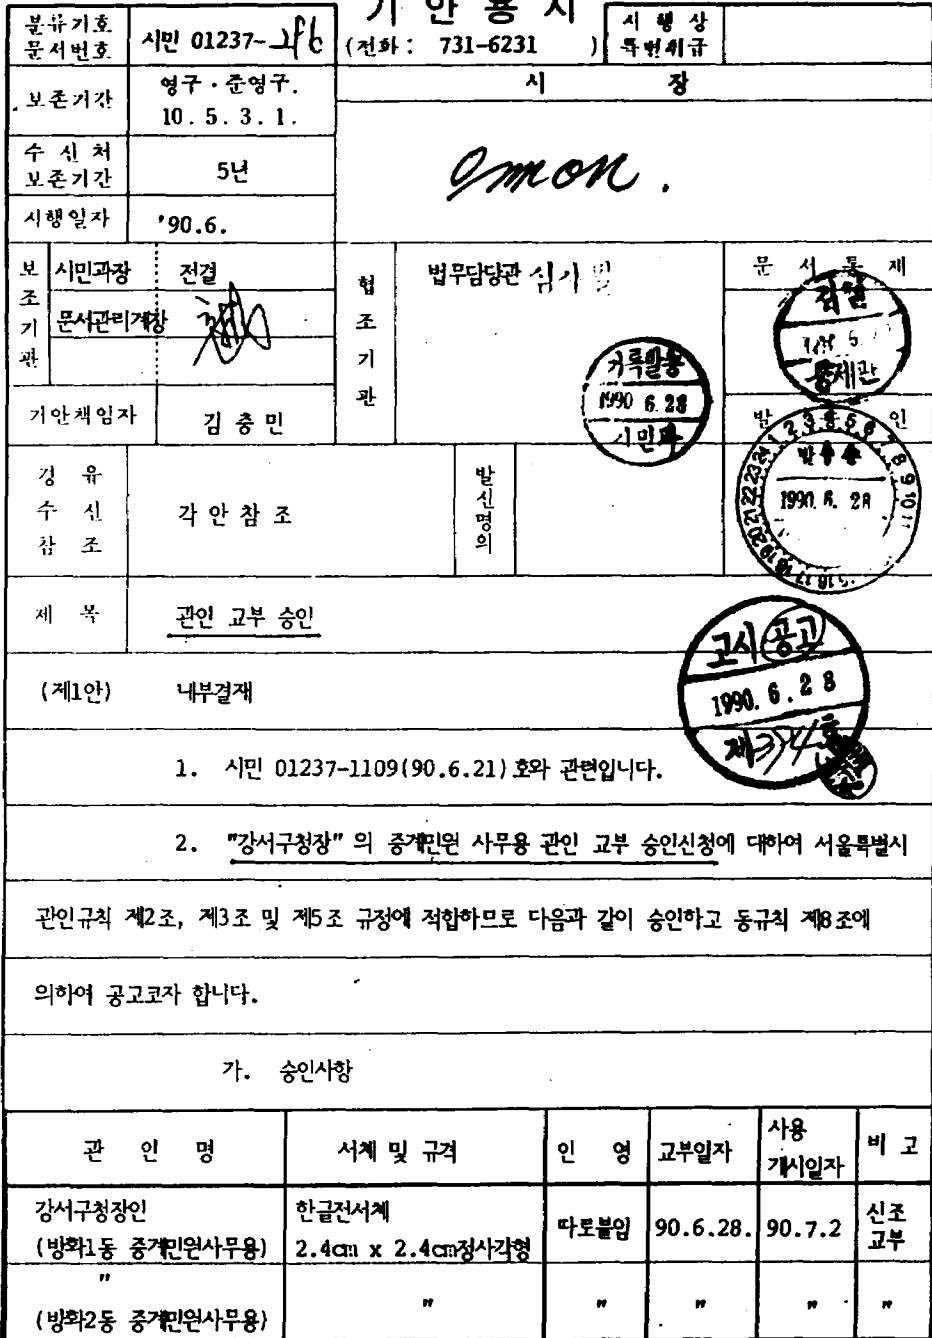 기 안 용 지
분류기호
문서번호
시민 01237-
(전화 : 731-6231 )
시 행 상
특별취급
보존기간
영구 · 준영구.
10 . 5 . 3 . 1 .
시 장
수 신 처
보존기간
5년
시행일자
'90.6.
보조기관
시민과장
전결
문서관리계장
협조기관
법무담당관
문 서 통 제
1990 6.
통제관
기록말용
1990 6.28
시민과
기안책임자
김 충 민
발 인
경 유
수 신
참 조
각 안 참 조
발신명의
1990. 6. 28
제 목
관인 교부 승인
고시 공고
1990. 6. 28
(제1안) 내부결재
1. 시민 01237-1109(90.6.21)호와 관련입니다.
2. "강서구청장" 의 중계민원 사무용 관인 교부 승인신청에 대하여 서울특별시
관인규칙 제2조, 제3조 및 제5조 규정에 적합하므로 다음과 같이 승인하고 동규칙 제8조에
의하여 공고코자 합니다.
가. 승인사항
관 인 명 서체 및 규격 인 영 교부일자 사용 개시일자 비 고
강서구청장인 한글전서체
(방화1동 중계민원사무용) 2.4cm x 2.4cm정사각형 따로붙임 90.6.28. 90.7.2 신조 교부
"
(방화2동 중계민원사무용) " " " " "